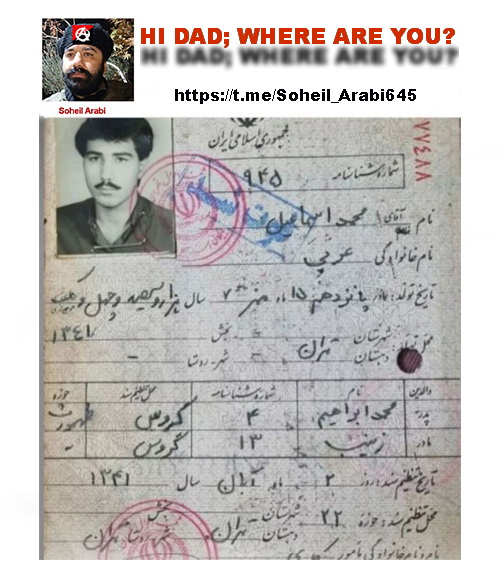 HI DAD; WHERE ARE YOU?
Soheil Arabi
https://t.me/Soheil_Arabi645
جمهوری اسلامی ایران
شماره شناسنامه ۹۴۵
۷۷۴۸۸
نام آقای محمد اسماعیل
نام خانوادگی عربی
تاریخ تولد: روز پانزدهم ۱۵ ماه مهر ۷ سال هزار و سیصد و چهل و یک
۱۳۴۱
محل تولد: شهرستان تهران بخش -
دهستان - شهر-روستا -
والدین نام شماره شناسنامه محل تنظیم سند حوزه
پدر محمد ابراهیم ۴ گروس
مادر زینب ۱۳ گروس -
تاریخ تنظیم سند: روز ۲ ماه آبان سال ۱۳۴۱
محل تنظیم سند: حوزه ۲۲ شهرستان تهران بخش
دهستان شهر-روستا تهران
نام و نام خانوادگی مأمور